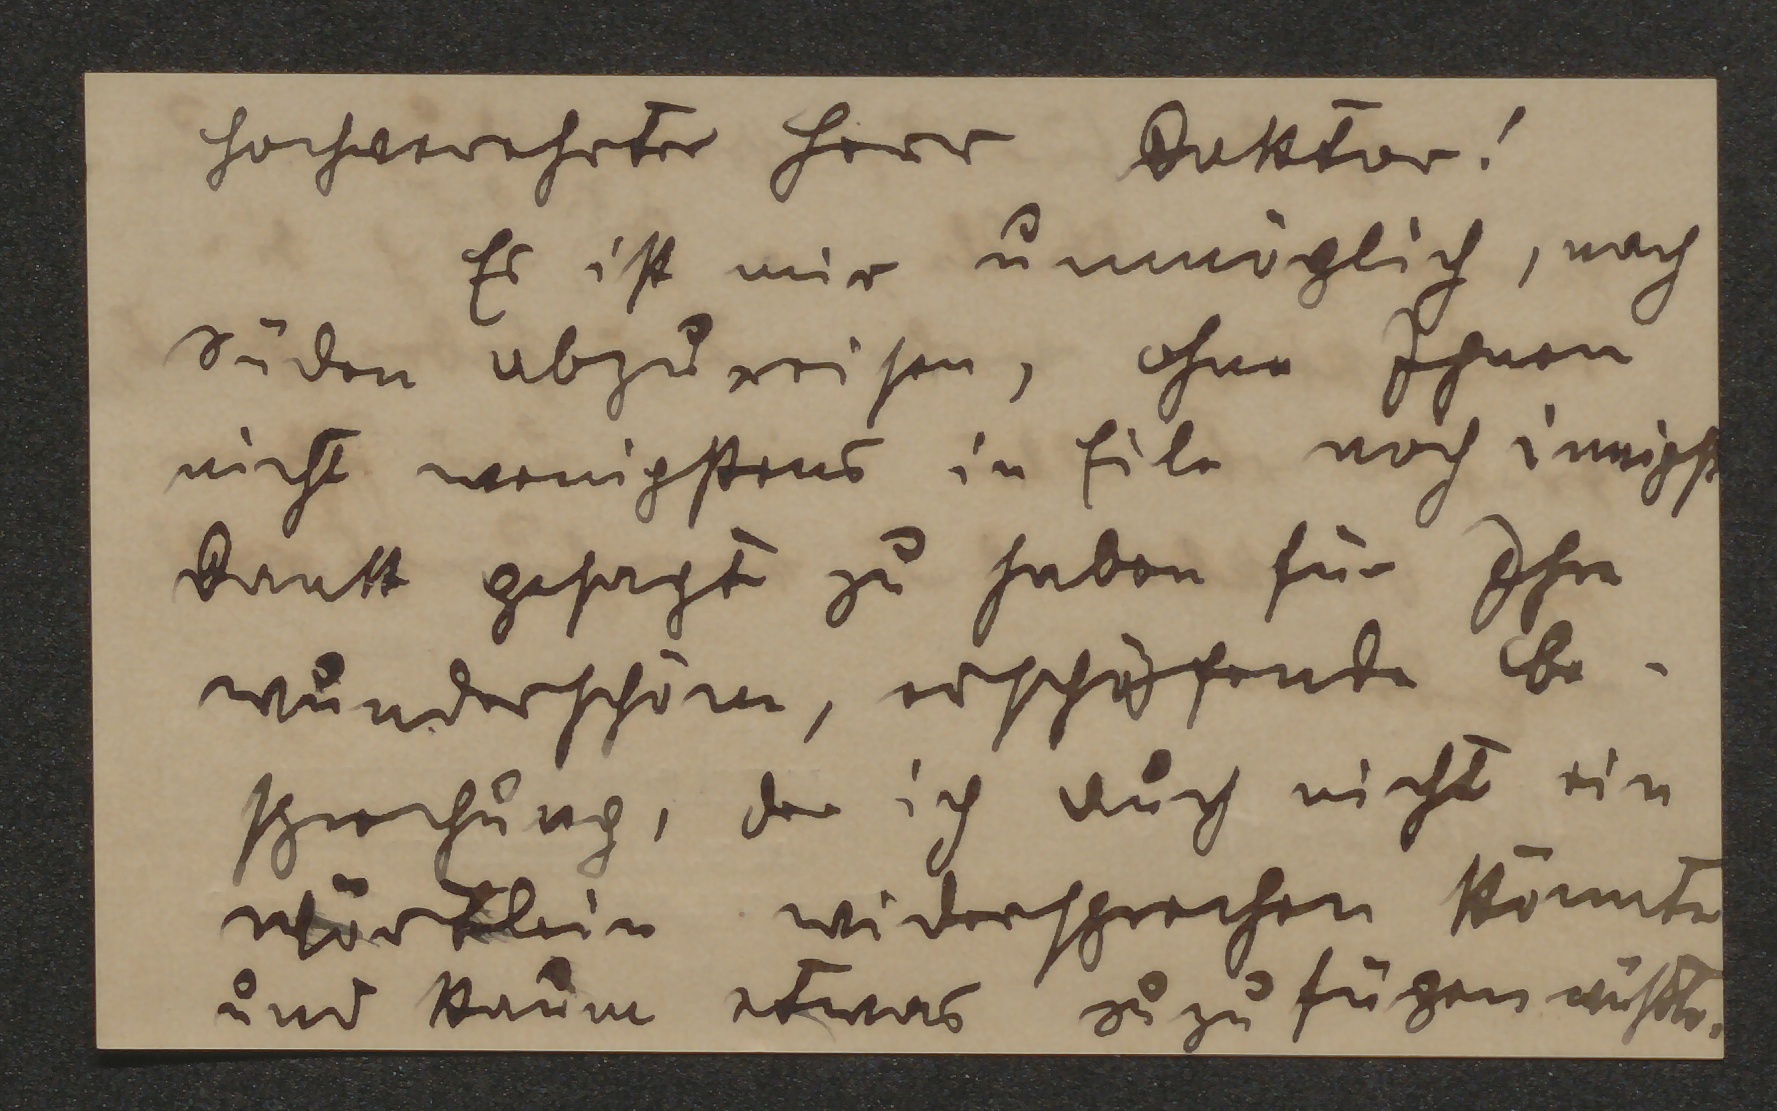 Hochverehrter Herr Doktor!
Es ist mir unmöglich, nach
Süden abzureisen, ohne Ihnen
nicht wenigstens in Eile noch innigst
Dank gesagt zu haben für Ihre
wunderschöne, erschöpfende Be-
sprechung, der ich auch nicht ein
Wörtlein widersprechen könnte
und kaum etwas zuzufügen wüßte.